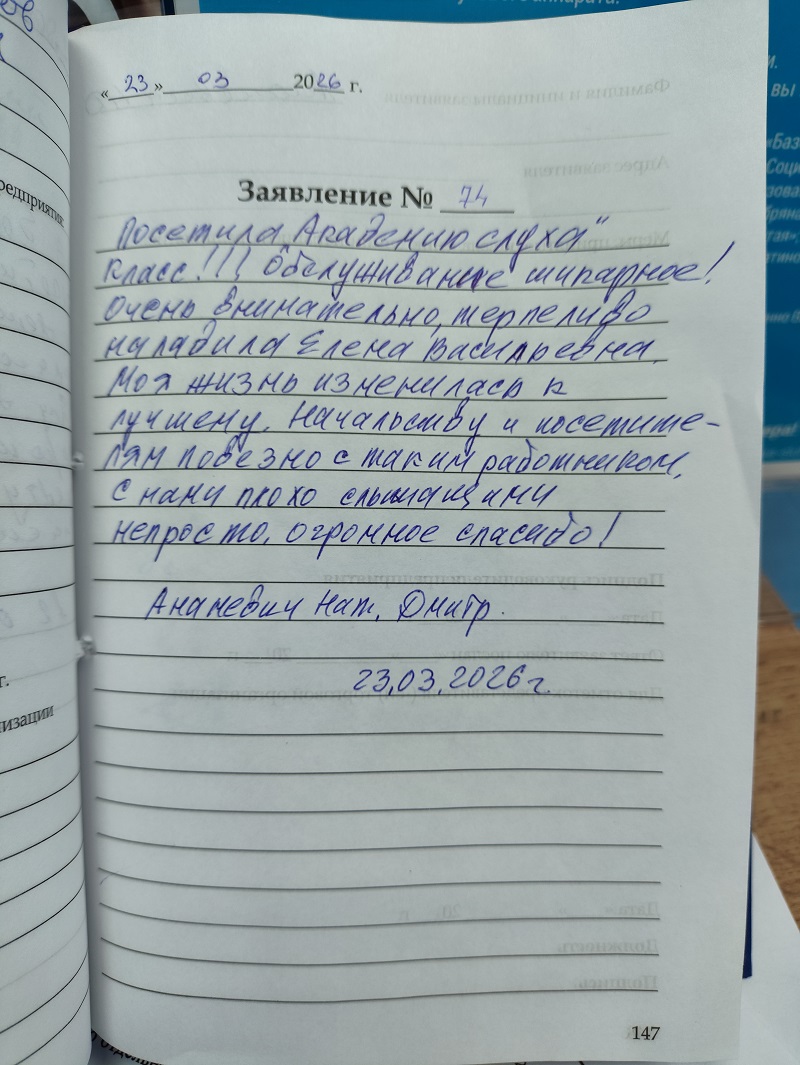 «23» 03 2026 г.
Заявление № 74
Посетила "Академию слуха"
Класс!!! Обслуживание шикарное!
Очень внимательно, терпеливо
наладила Елена Васильевна.
Моя жизнь изменилась к
лучшему. Начальству и посетите-
лям повезло с таким работником.
С нами плохо слышащими
непросто. Огромное спасибо!
Ананевич Нат. Дмитр.
23.03.2026г.
147